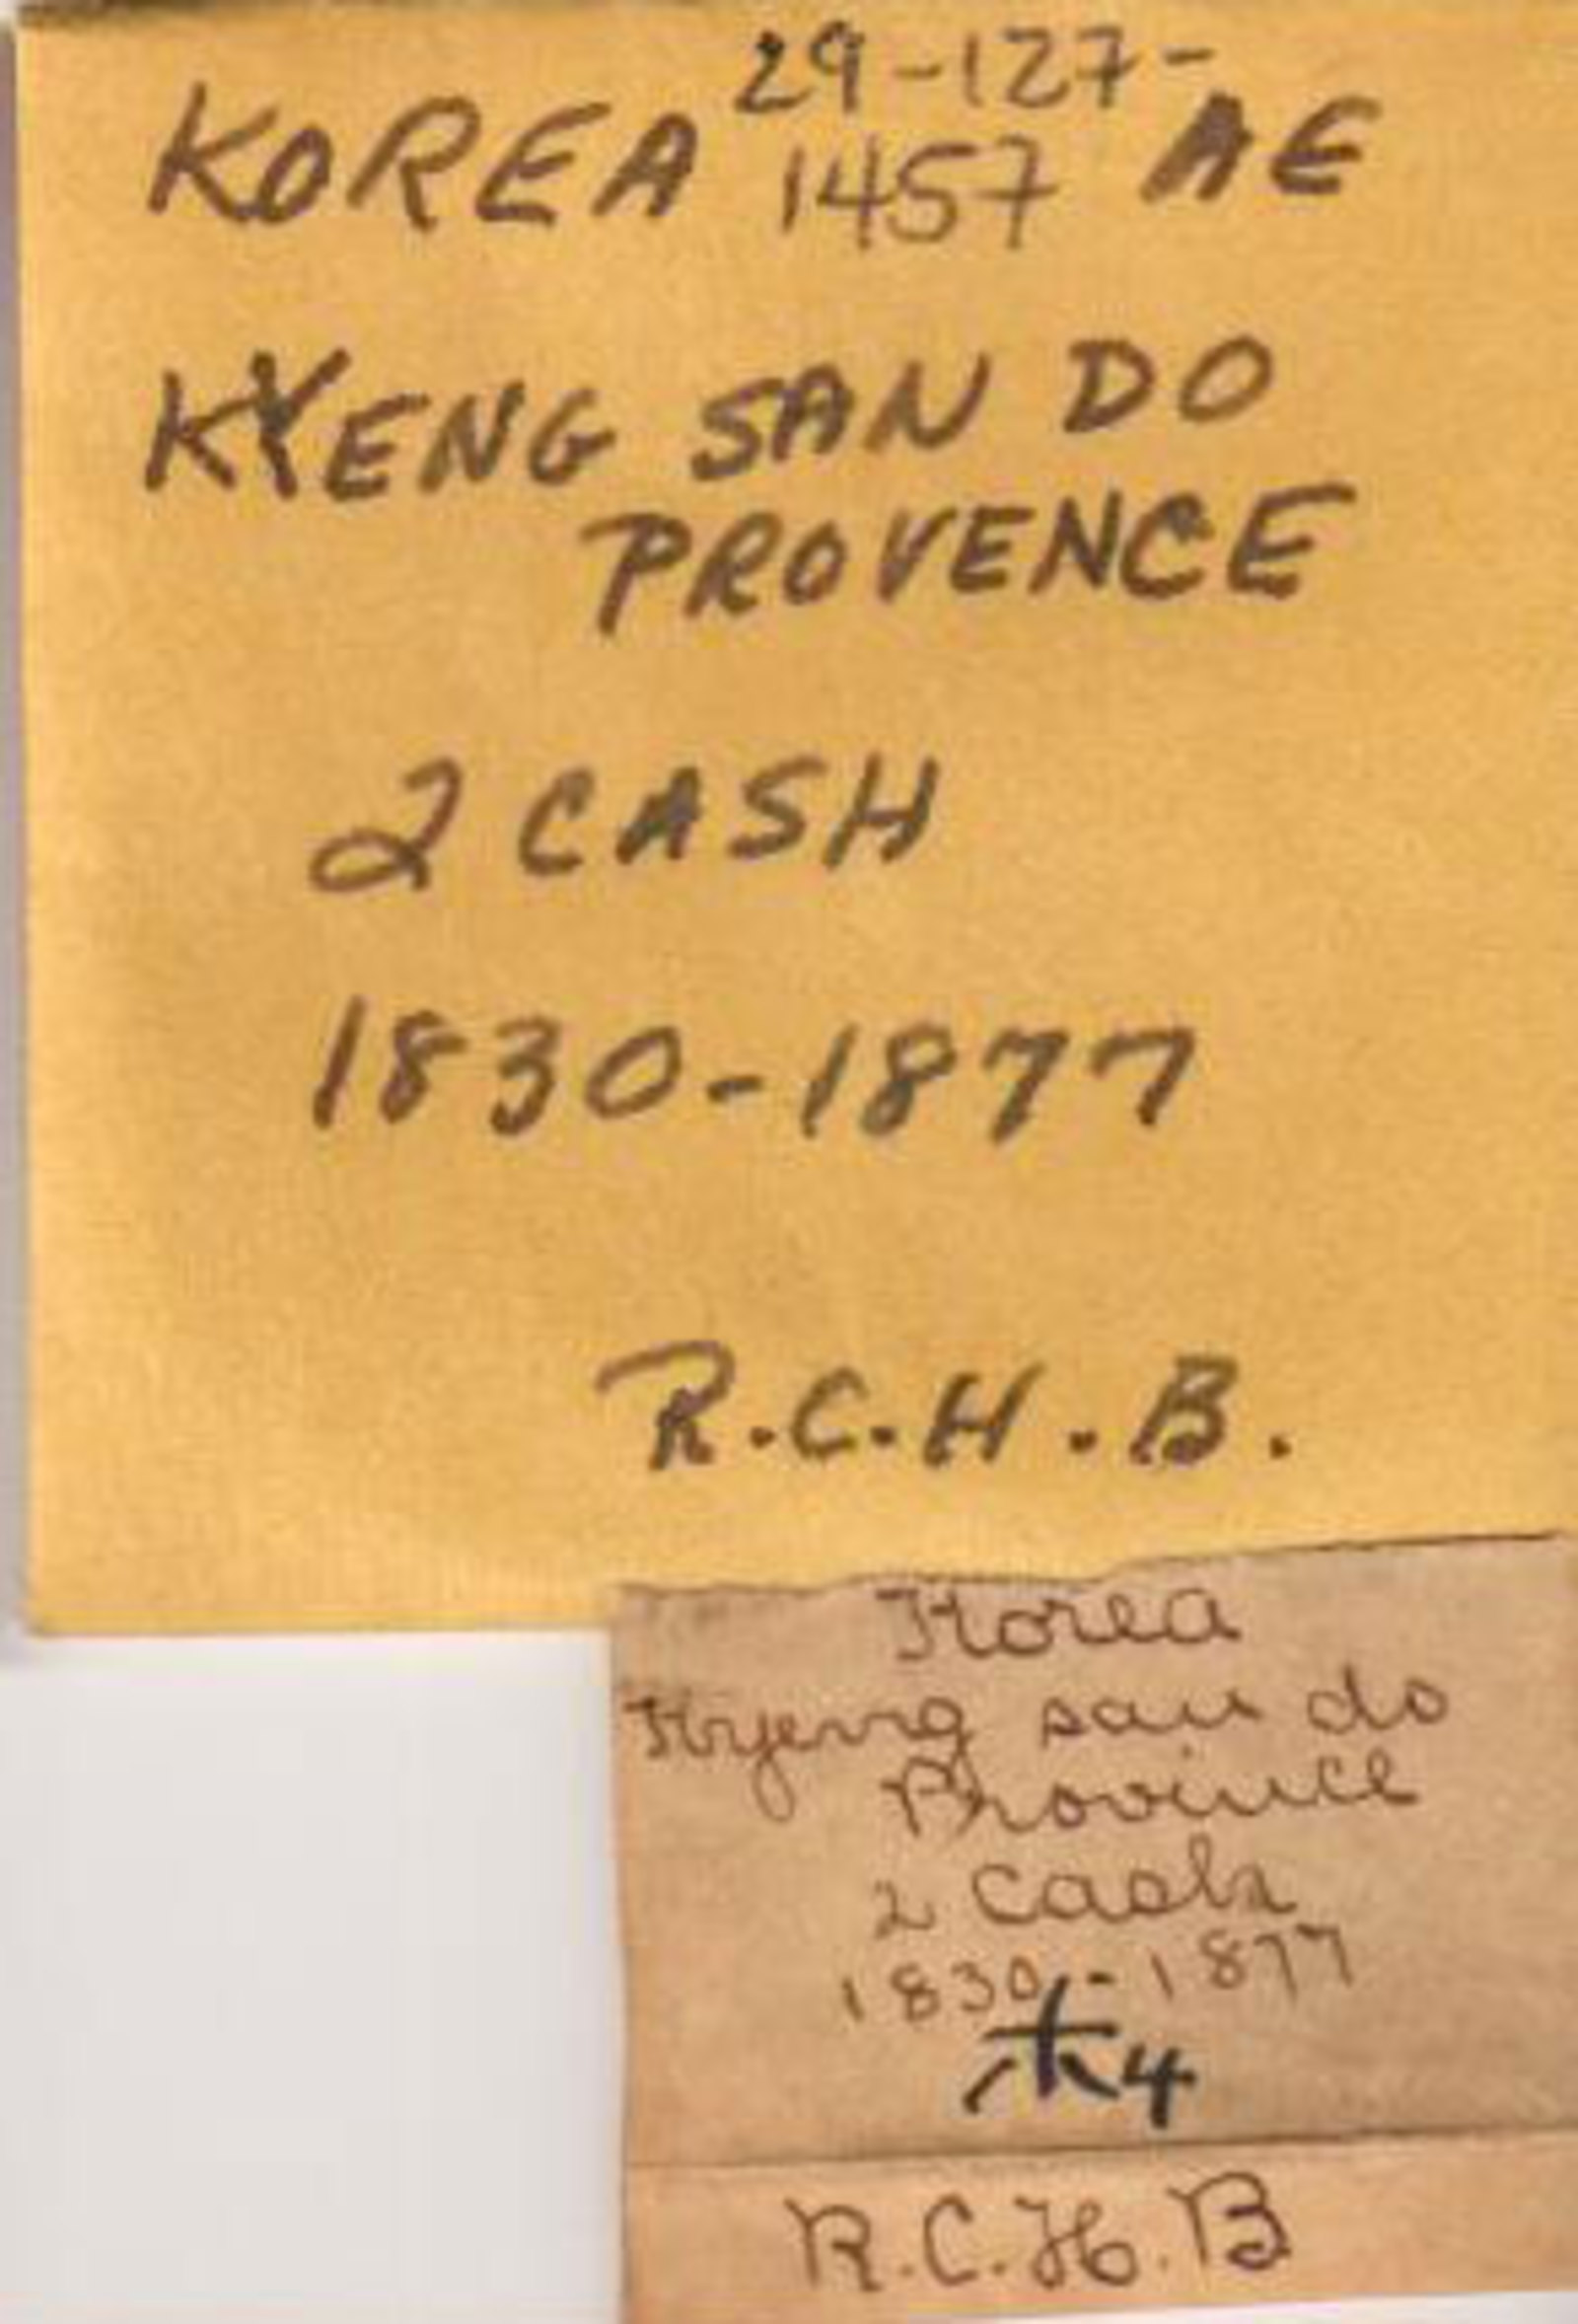 29-127-
KOREA 1457 AE
KYENG SAN DO
PROVENCE
2 CASH
1830-1877
R.C.H.B.
Korea
Kyeng san do
Province
2 Cash
1830-1877
木4
R.C.H.B